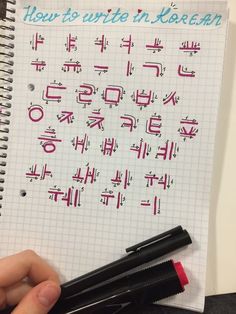 How to write in KOREAN
ㅏ ㅑ ㅓ ㅕ ㅗ ㅛ
ㅜ ㅠ ㅡ ㅣ ㄱ ㄴ
ㄷ ㄹ ㅁ ㅂ ㅅ
ㅇ ㅈ ㅊ ㅋ ㅌ ㅍ
ㅎ ㅐ ㅒ ㅔ ㅖ
ㅘ ㅙ ㅚ ㅝ
ㅞ ㅟ ㅢ